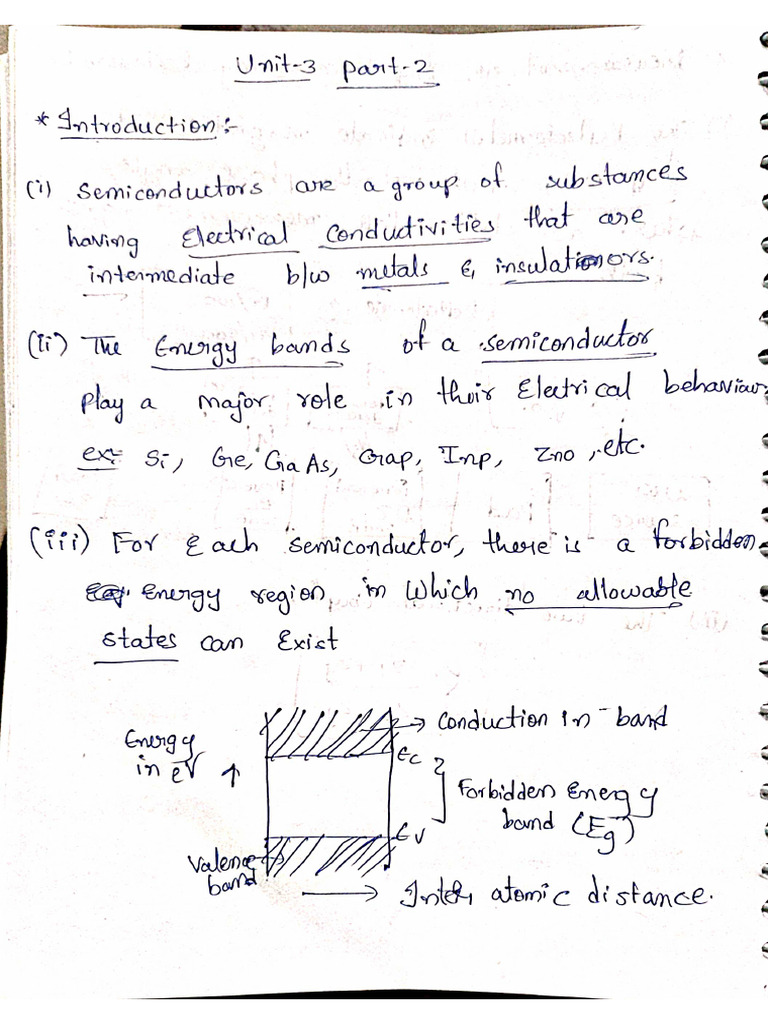 Unit-3 part-2
* Introduction :-
(i) Semiconductors are a group of substances
having Electrical Conductivities that are
intermediate b/w metals & insulators.
(ii) The Energy bands of a semiconductor
play a major role in their Electrical behaviour.
ex:- Si, Ge, GaAs, Gap, Inp, Zno, etc.
(iii) For Each semiconductor, there is a forbidden
energy region in which no allowable
states can Exist
Conduction in-band
Energy
in eV ↑
Ec
Forbidden Energy
band (Eg)
Ev
Valence
band
→ Inter atomic distance.